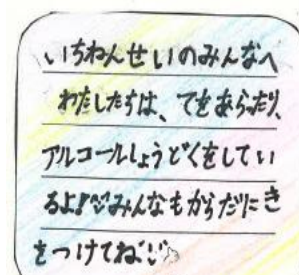 いちねんせいのみんなへ
わたしたちは、てをあらったり、
アルコールしょうどくをしてい
るよ!みんなもからだにき
をつけてね